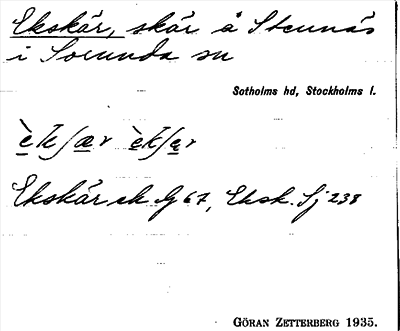 Ekskär, skär å Stennäs
i Sorunda sn
Sotholms hd, Stockholms l.
èkʃær èkʃær
Ekskär ek. G 67, Eksk. Sj 238
GÖRAN ZETTERBERG 1935.